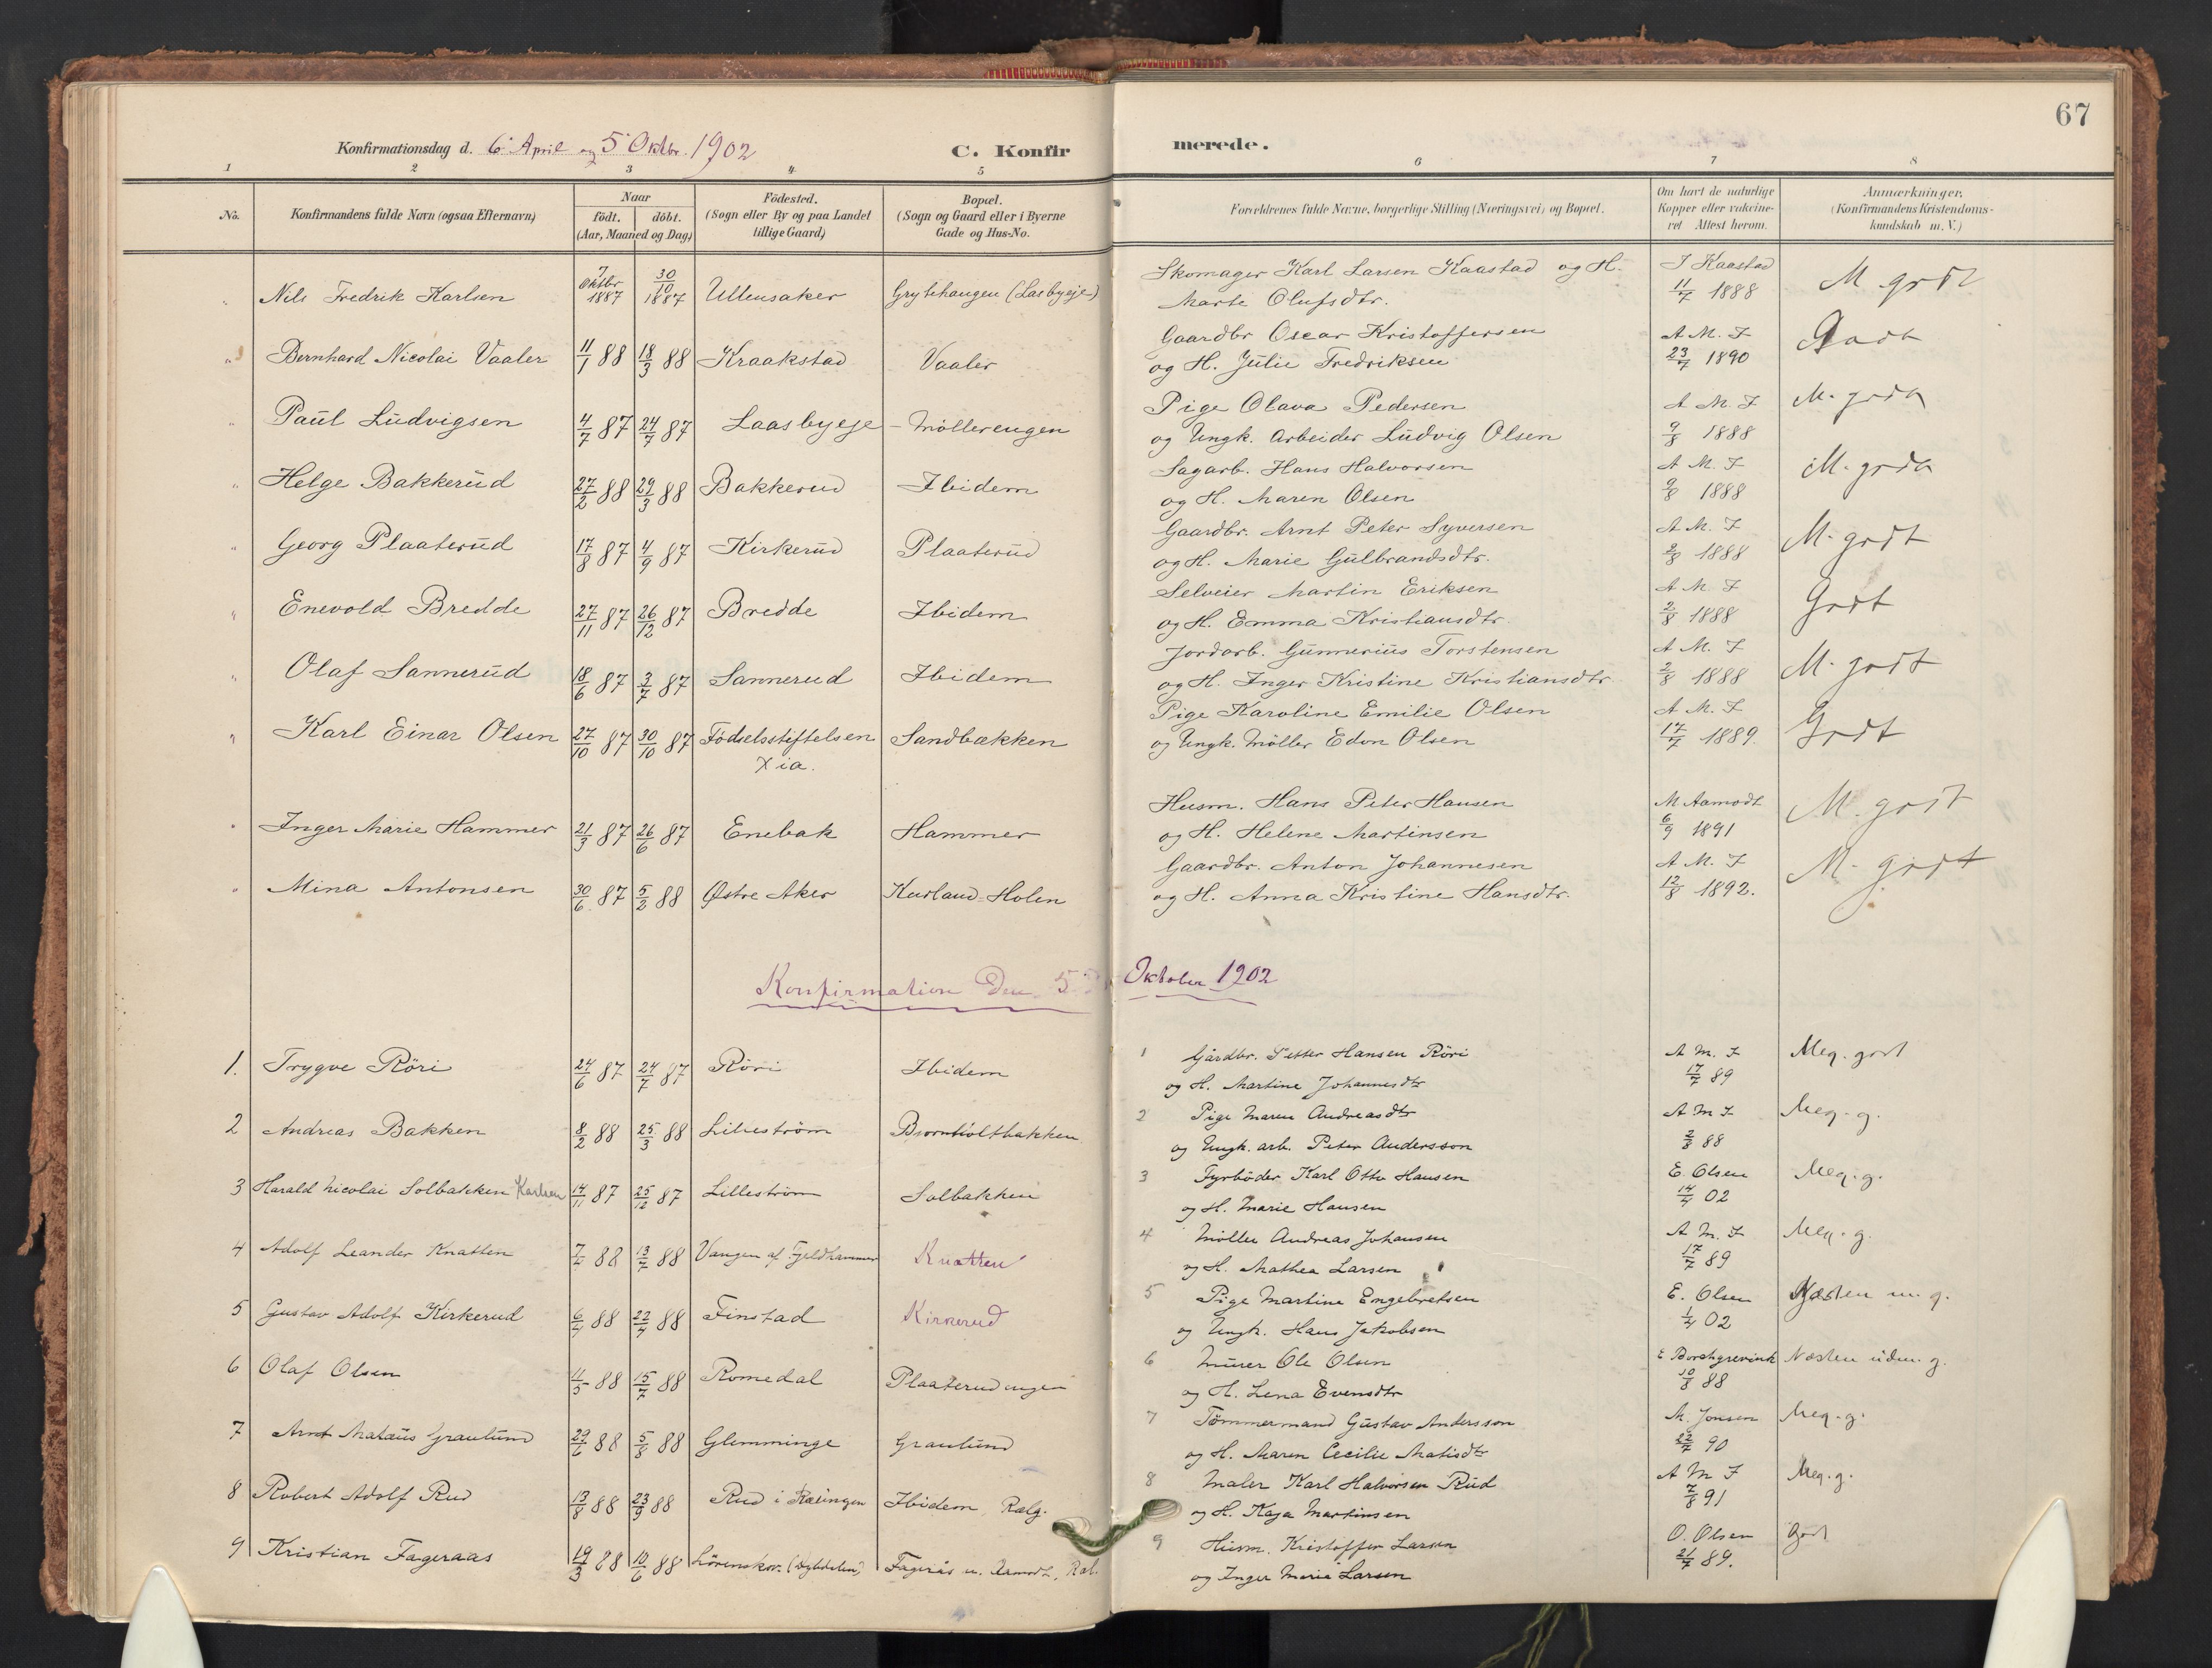 67
Konfirmationsdag d. 6. April og 5. Oktbr. 1902 C. Konfirmerede.
1 2 3 4 5 6 7 8
No. Konfirmandens fulde Navn (ogsaa Efternavn) Naar födt. döbt. (Aar, Maaned og Dag) Födested. (Sogn eller By og paa Landet tillige Gaard) Bopæl. (Sogn og Gaard eller i Byerne Gade og Hus-No. Forældrenes fulde Navne, borgerlige Stilling (Næringsvei) og Bopæl. Om havt de naturlige Kopper eller vakcineret Attest herom. Anmærkninger. (Konfirmandens Kristendomskundskab m. V.)
" Nils Fredrik Karlsen 7 Oktbr 1887 30/10 1887 Ullensaker Grytehaugen (Lasbyeje) Skomager Karl Larsen Kaastad og H. Marte Olufsdtr. I Kaastad 11/7 1888 M godt
" Bernhard Nicolai Vaaler 11/1 88 18/3 88 Kraakstad Vaaler Gaardbr Oscar Kristoffersen og H. Julie Fredriksen A M. I 23/7 1890 Godt
" Paul Ludvigsen 4/7 87 24/7 87 Laasbyeje - Möllerengen Pige Olava Pedersen og Ungk. Arbeider Ludvig Olsen A M. I 9/8 1888 M. godt
" Helge Bakkerud 27/2 88 29/3 88 Bakkerud Ibidem Sagarb. Hans Halvorsen og H. Maren Olsen A M. I 9/8 1888 M. godt
" Georg Plaaterud 17/8 87 4/9 87 Kirkerud Plaaterud Gaardbr. Arnt Peter Syversen og H. Marie Gulbrandsdtr. A M. I 2/8 1888 M. godt
" Enevold Bredde 27/11 87 26/12 87 Bredde Ibidem Selveier Martin Eriksen og H. Emma Kristiansdtr. A M. I 2/8 1888 Godt
" Olaf Sannerud 18/6 87 3/7 87 Sannerud Ibidem Jordarb. Gunnerius Torstensen og H. Inger Kristine Kristiansdtr A M. I 2/8 1888 M. godt
" Karl Einar Olsen 27/10 87 30/10 87 Födselsstiftelsen Xia. Sandbækken Pige Karoline Emilie Olsen og Ungk. Möller Edon Olsen A M. I 17/7 1889. Godt
" Inger Marie Hammer 21/3 87 26/6 87 Enebak Hammer Husm. Hans Peter Hansen og H. Helene Martinsen M Aamodt 6/9 1891 M. godt
" Mina Antonsen 30/6 87 5/2 88 Østre Aker Kurland-Holen Gaardbr. Anton Johannesen og H. Anna Kristine Hansdtr. A M. I 12/8 1892. M. godt
Konfirmation Den 5. Oktober 1902
1. Trygve Röri 24/6 87 24/7 87 Röri Ibidem 1 Gårdbr. Petter Hansen Röri og H. Martine Johannesdtr A M. I 17/7 89 Meg. godt
2 Andreas Bakken 8/2 88 25/3 88 Lilleström Bjornholtbakken 2 Pige Maren Andreasdtr og Ungk. arb. Peter Andersson A M I 2/8 88 Meg. g.
3 Harald Nicolai Solbakken Karlsen 14/11 87 25/12 87 Lilleström Solbakken 3 Fyrböder Karl Otto Hansen og H. Marie Hansen E. Olsen 14/4 02 Meg. g.
4 Adolf Leander Knatten 7/4 88 13/7 88 Vangen af Fjeldhammer Knatten 4 Möller Andreas Johansen og H. Mathea Larsen A M. I 17/7 89 Meg. g.
5 Gustav Adolf Kirkerud 6/4 88 22/4 88 Finstad Kirkerud 5 Pige Martine Engebretsen og Ungk. Hans Jakobsen E. Olsen 1/4 02 Næsten m. g.
6 Olaf Olsen 11/5 88 15/7 88 Romedal Plaaterudengen 6 Murer Ole Olsen og H. Lena Evensdtr E Borchgrevink 10/8 88 Næsten udm. g.
7 Arnt Matæus Granlund 29/6 88 5/8 88 Glemminge Granlund 7 Tömmermand Gustav Andersson og H. Maren Cecilie Matisdtr M. Jonsen 22/7 90 Meg. g.
8 Robert Adolf Rud 13/8 88 23/9 88 Rud i Rælingen Ibidem Rælg. 8 Maler Karl Halvorsen Rud og H. Kaja Martinsen A M I 7/8 91 Meg. g.
9 Kristian Fageraas 19/3 88 10/6 88 Lörenskov. Fagerås u. Aamodt, Ræl. 9 Husm. Kristoffer Larsen og Inger Marie Larsen O. Olsen 21/7 89. Godt